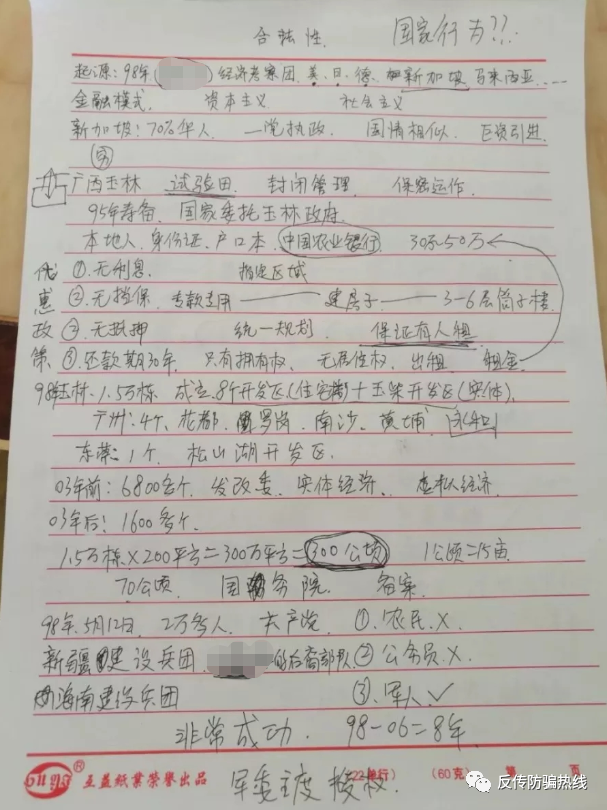 合法性. 国家行为??.
起源: 98年( )经济考察团. 美. 日. 德. 新加坡 马来西亚.....
金融模式. 资本主义 社会主义
新加坡: 70%华人. 一党执政. 国情相似. 巨资引进.
广西玉林 试验田. 封闭管理. 保密运作.
95年筹备. 国家委托玉林政府.
本地人. 身份证. 户口本. 中国农业银行. 30万~50万
优惠政策
①.无利息. 指定区域
②.无担保. 专款专用 —— 建房子 —— 3-6层筒子楼.
③.无抵押 统一规划. 保证有人租
④.还款期30年. 只有拥有权. 无居住权. 出租 租金
98年玉林. 1.5万栋 成立. 8个开发区(住宅)+玉柴开发区(实体).
广州: 4个. 花都. 罗岗. 南沙. 黄埔 永和
东莞: 1个. 松山湖开发区.
03年前: 6800多个. 发改委. 实体经济. 虚拟经济
03年后: 1600多个.
1.5万栋×200平方=300万平方=300公顷 1公顷=15亩
70公顷. 国务院. 备案.
98年.5月12日. 2万多人. 共产党 ①.农民.×
新疆建设兵团. 的后裔部队 ②公务员.×
海南建设兵团 ③.军人.✓
非常成功. 98-06=8年
互益紙業榮譽出品 (22单行) (60克) 第 页
军委主 授权
反传防骗热线